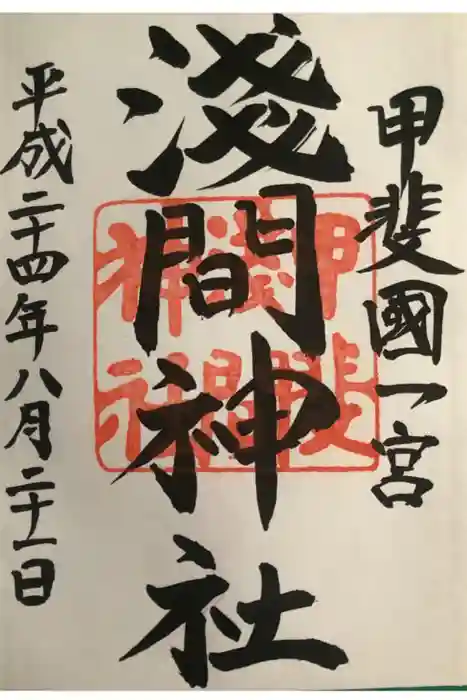 甲斐國一宮
淺間神社
甲斐
淺間
神社
平成二十四年八月二十一日